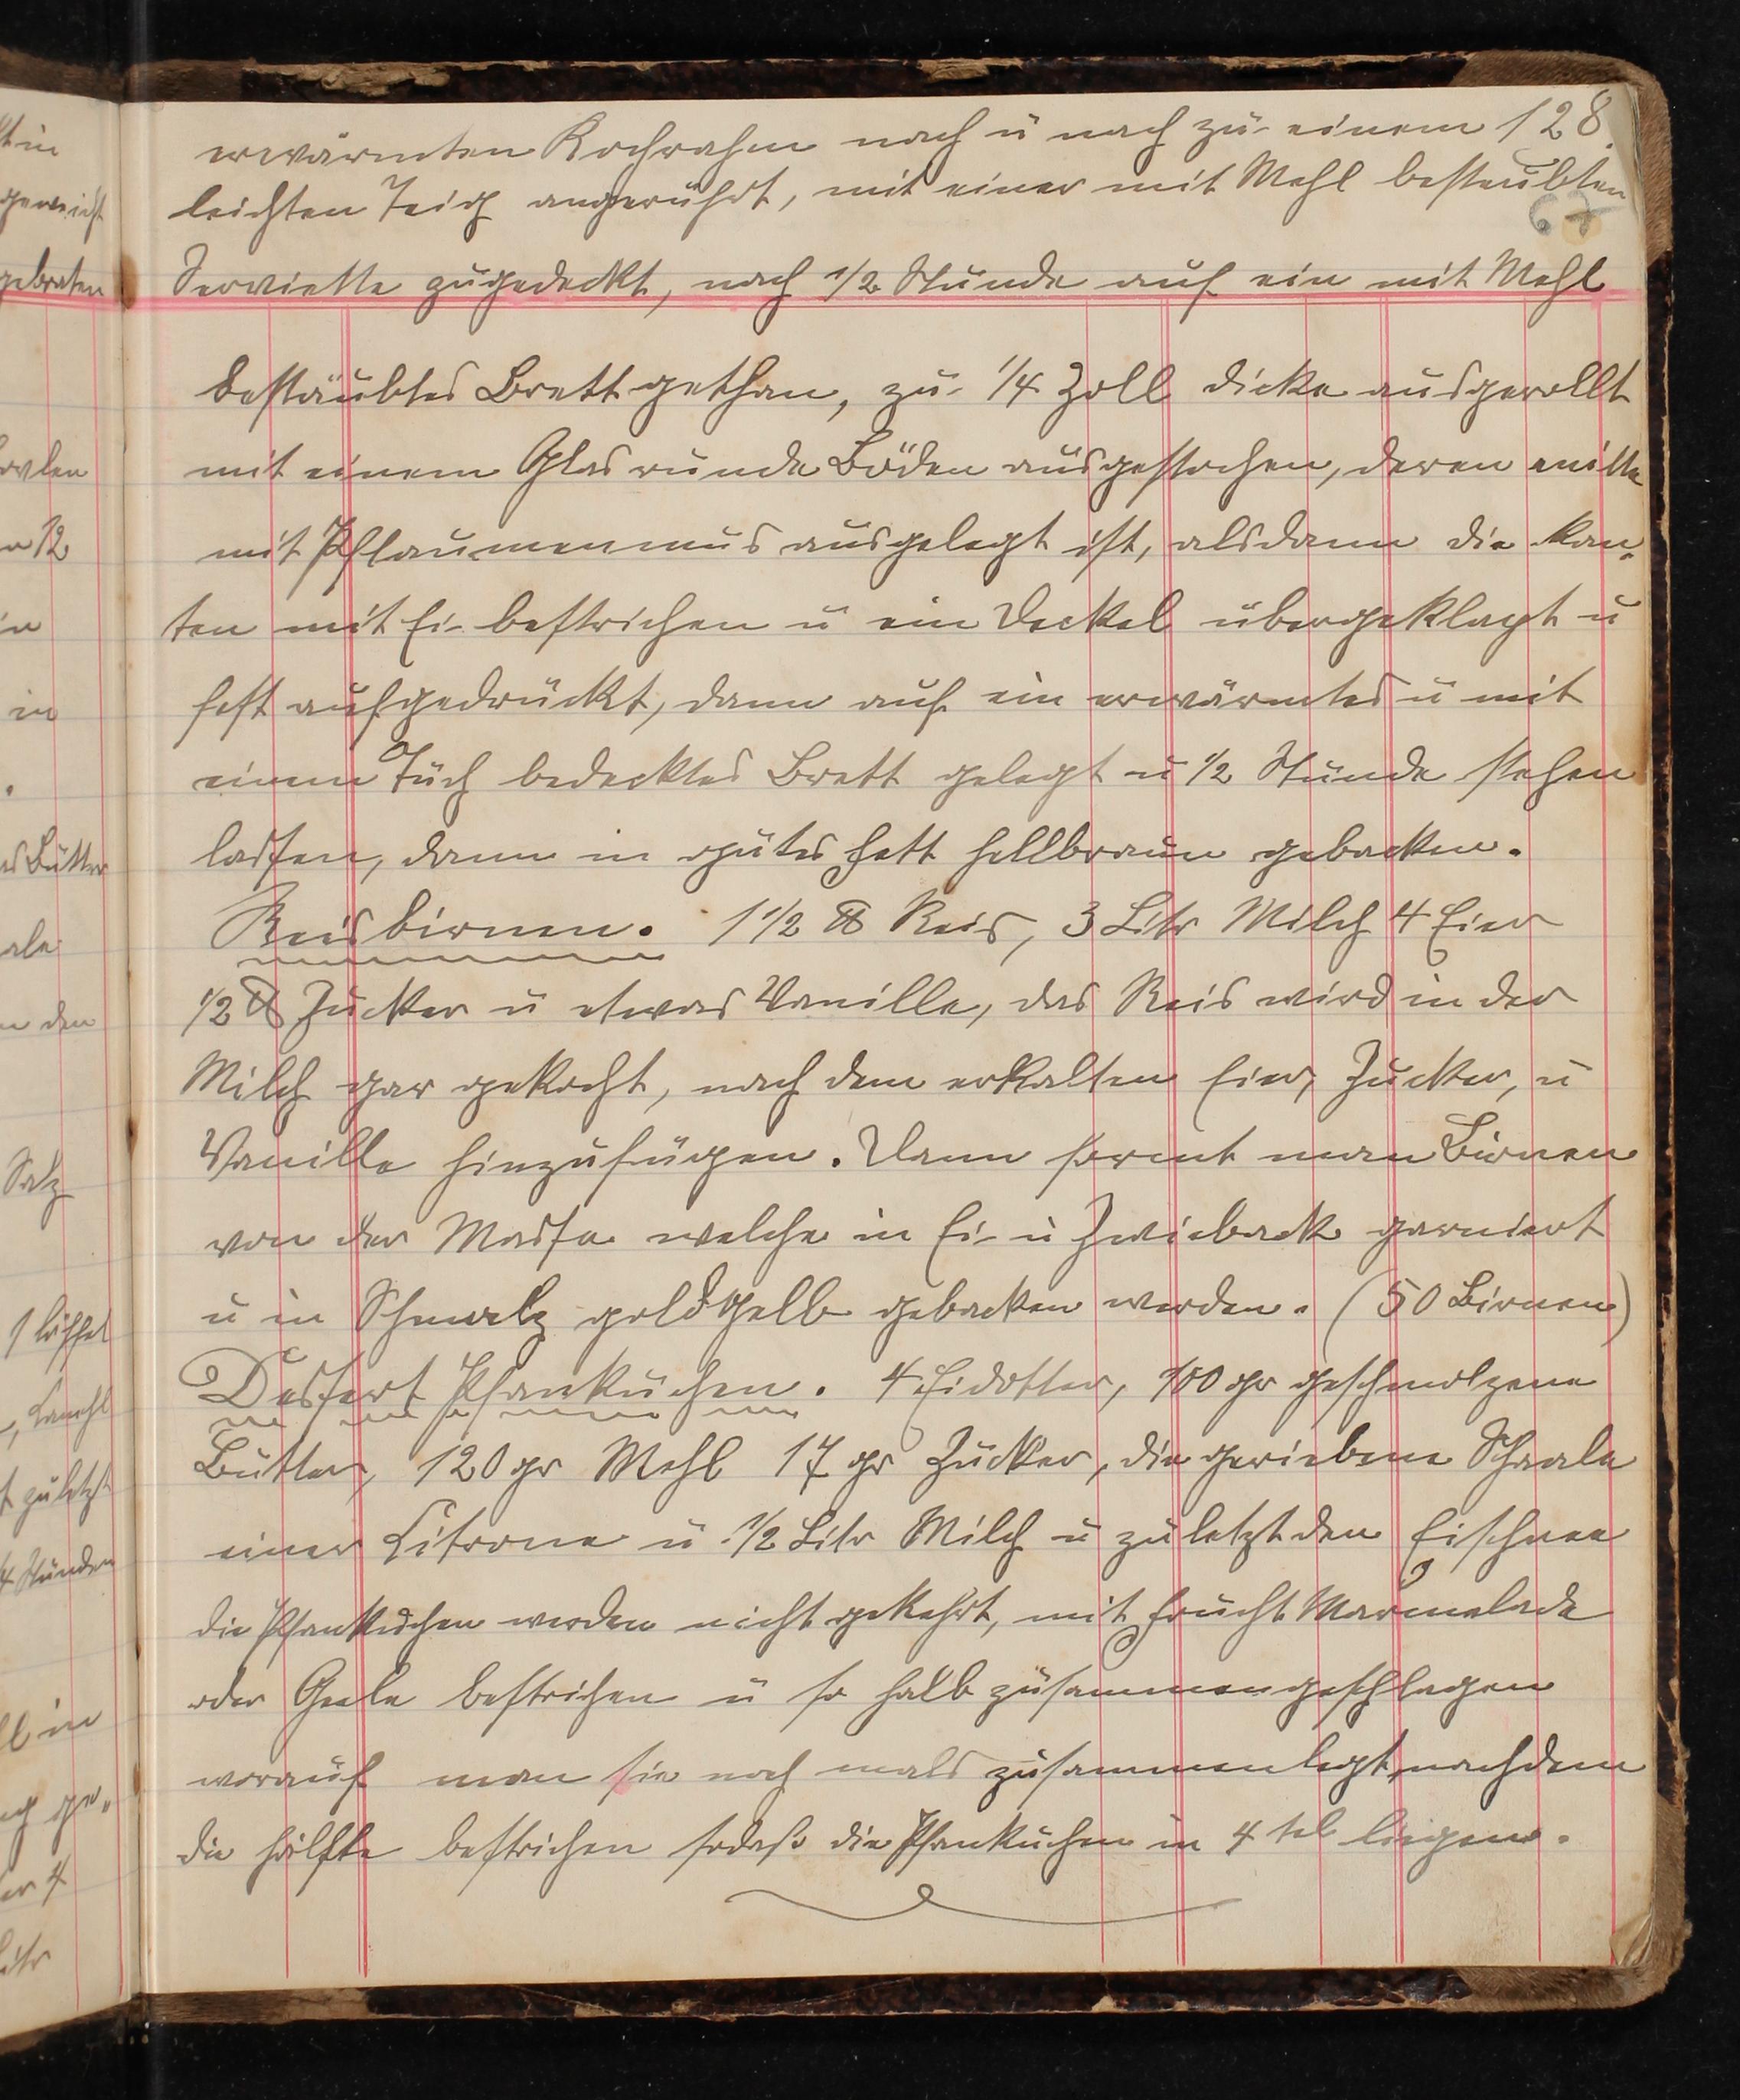 erwärmten Kochrahm nach u nach zu einem 128.
leichten Teig angerührt, mit einer mit Mehl bestaubten
67
Serviette zugedeckt, nach 1/2 Stunde auf ein mit Mehl
bestäubtes Brett gethan, zu 1/4 Zoll dicke ausgerollt
mit einem Glas runde Böden ausgestochen, deren mitte
mit Pflaumenmus ausgelegt ist, alsdann die Kan,
ten mit Ei bestrichen u ein Deckel übergeklapt u
fest aufgedrückt, dann auf ein erwärmtes u mit
einem Tuch bedecktes Brett gelegt u 1/2 Stunde stehen
lassen, dann in gutes fett hellbraun gebacken.
Reisbirnen. 1 1/2 ℔ Reis, 3 Litr Milch 4 Eier
1/2 ℔ Zucker u etwas Vanille, das Reis wird in der
Milch gar gekocht, nach dem erkalten Eier, Zucker, u
Vanille hinzufügen. Dann formt man Birnen
von der Masse welche in Ei u Zwieback garniert
u in Schmalz goldgelb gebacken werden. (50 Birnen)
Dessert Pfankuchen. 4 Eidotter, 100 gr geschmolzene
Butter, 120 gr Mehl 17 gr Zucker, die geriebene Schaale
einer Citrone u 1/2 Litr Milch u zuletzt den Eischnee
die Pfankuchen werden nicht gekehrt, mit frucht Marmelade
oder Geele bestrichen u so halb zusammengeschlagen
worauf man sie noch mals zusammenlegt, nachdem
die hälfte bestrichen sodaß die Pfankuchen in 4 tel liegen.